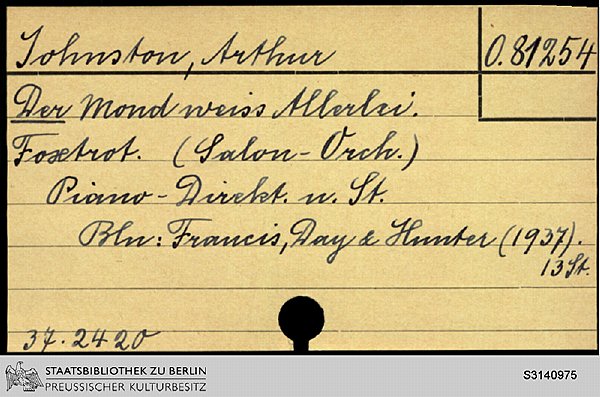 Johnston, Arthur
O. 81254
Der Mond weiss Allerlei.
Foxtrot. (Salon-Orch.)
Piano-Direkt. u. St.
Bln: Francis, Day & Hunter (1937).
13 St.
37.2420
STAATSBIBLIOTHEK ZU BERLIN
PREUSSISCHER KULTURBESITZ
S3140975